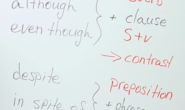 although } + clause
even though S+v
→ contrast
despite } preposition
in spite of + phrase